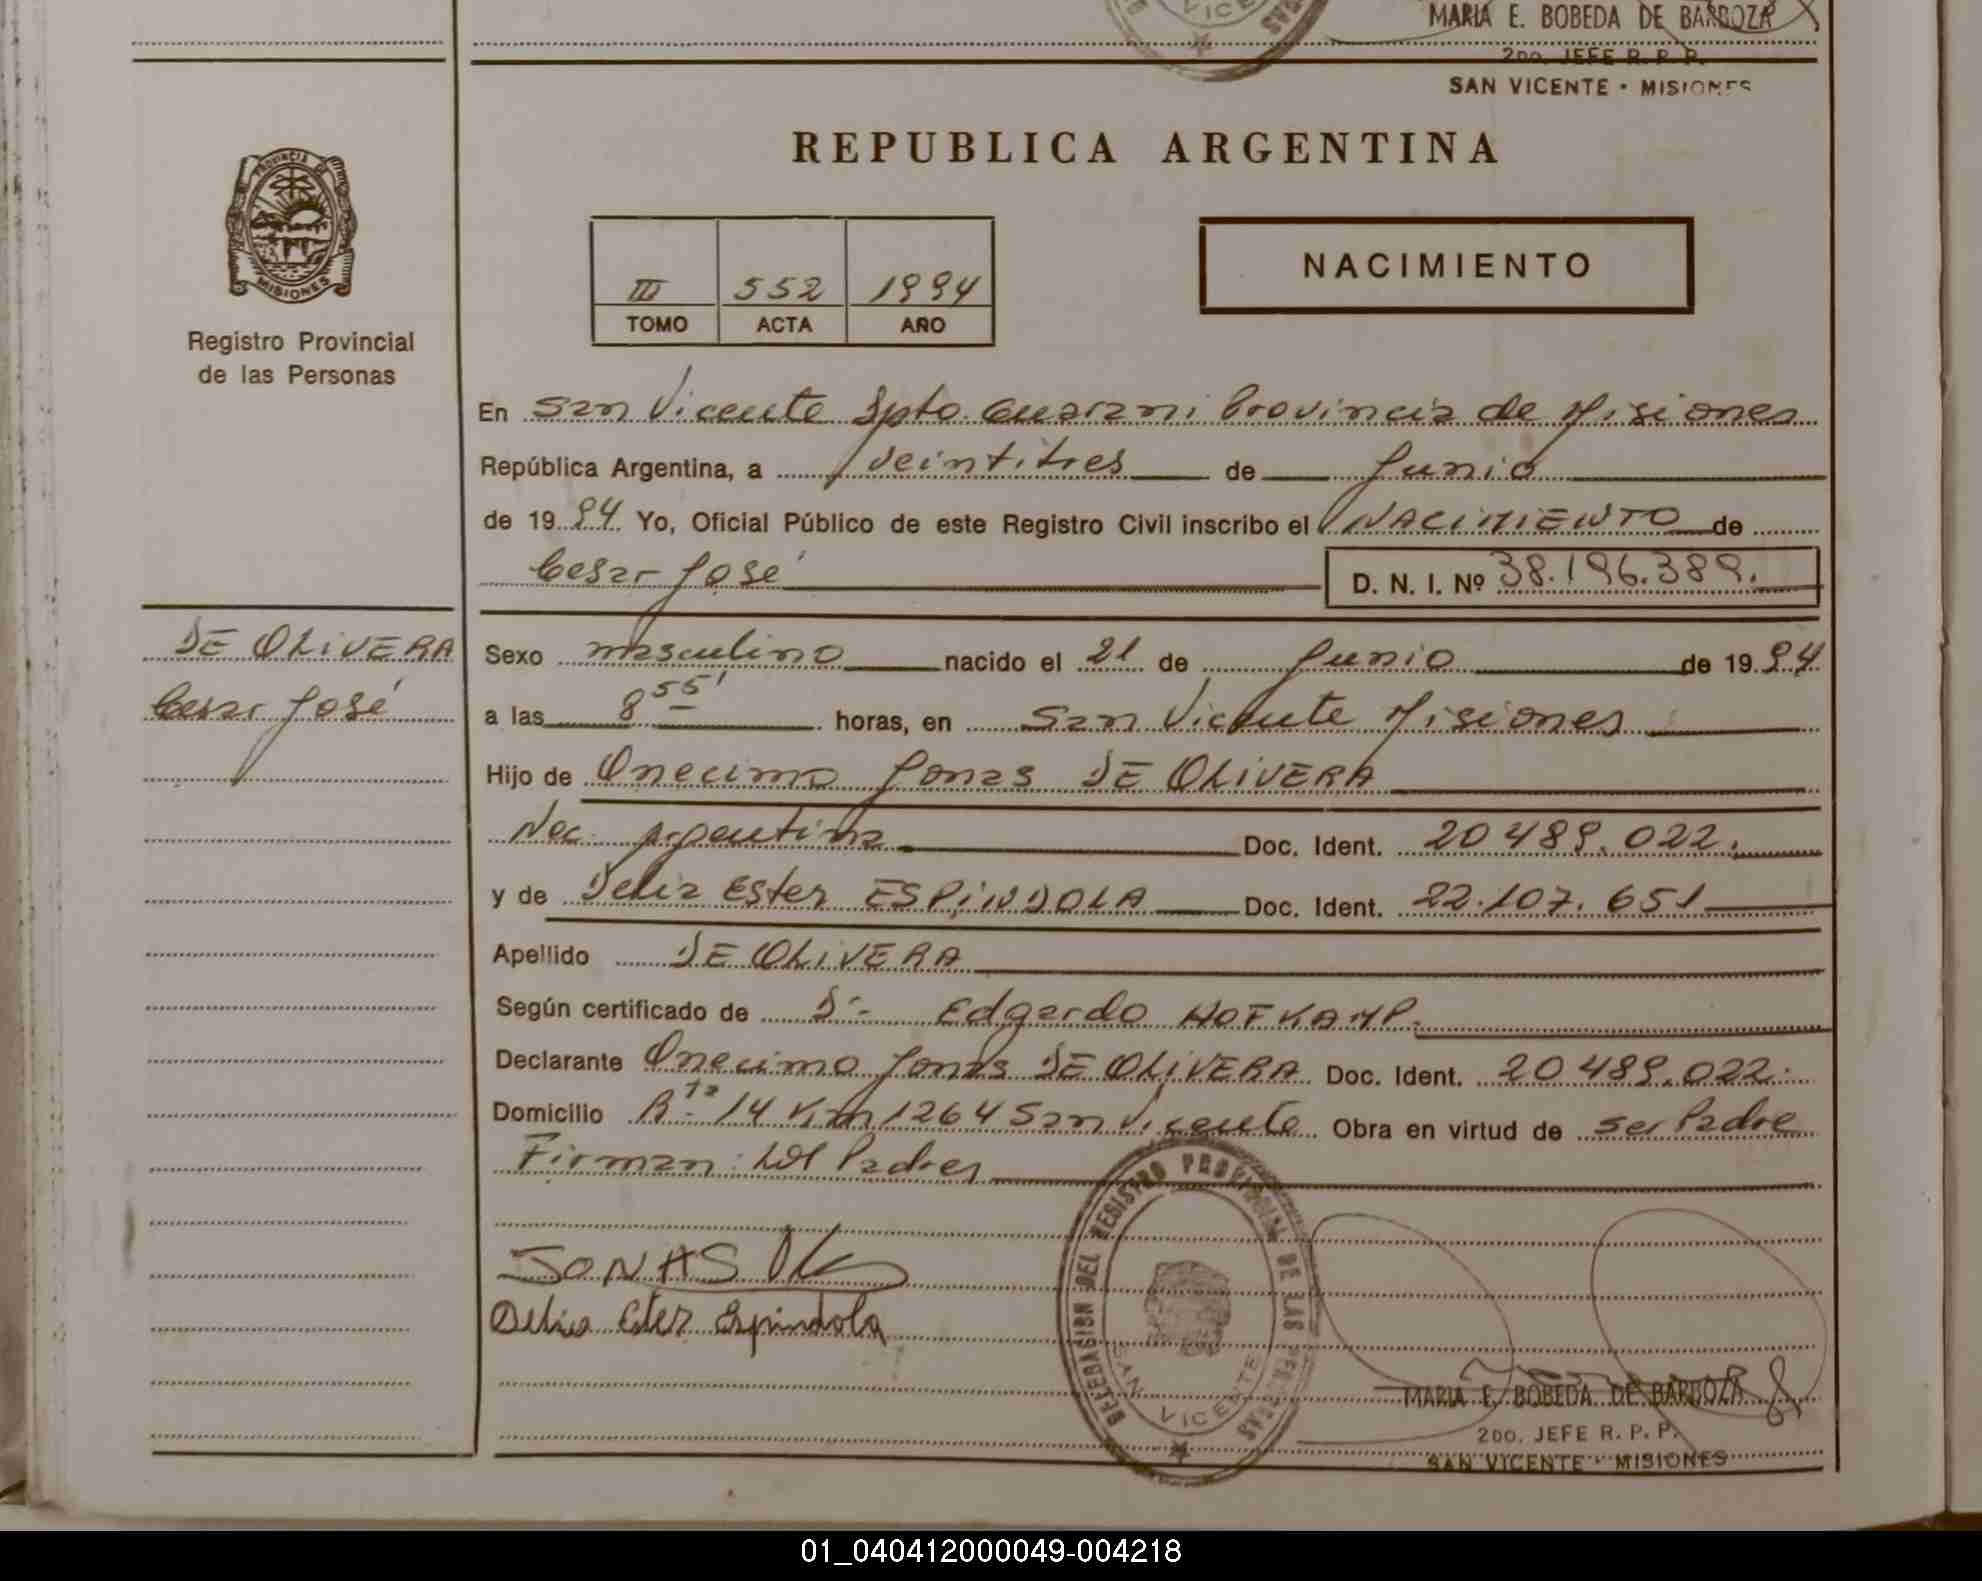 MARIA E. BOBEDA DE BARBOZA
2DO. JEFE R. P. P.
SAN VICENTE - MISIONES
REPUBLICA ARGENTINA
PROVINCIA DE
MISIONES
Registro Provincial
de las Personas
III 552 1994
TOMO ACTA AÑO
NACIMIENTO
En San Vicente Dpto. Guarani Provincia de Misiones
República Argentina, a veintitres de Junio
de 1994 Yo, Oficial Público de este Registro Civil inscribo el NACIMIENTO de
Cesar José D. N. I. Nº 38.196.389.
DE OLIVERA
Cesar José
Sexo masculino nacido el 21 de Junio de 1994
a las 8 55' horas, en San Vicente Misiones
Hijo de Onecimo Jonas DE OLIVERA
Nac. Argentina Doc. Ident. 20 489.022.
y de Delia Ester ESPINDOLA Doc. Ident. 22.107.651
Apellido DE OLIVERA
Según certificado de Dr. Edgardo HOFKAMP.
Declarante Onecimo Jonas DE OLIVERA Doc. Ident. 20 489.022.
Domicilio R.ta 14 Km 1264 San Vicente Obra en virtud de ser Padre
Firman: los Padres
JONAS
Delia Ester Espindola
DELEGACION DEL REGISTRO PROVINCIAL DE LAS PERSONAS
SAN VICENTE
MARIA E. BOBEDA DE BARBOZA
2DO. JEFE R. P. P.
SAN VICENTE - MISIONES
01_040412000049-004218